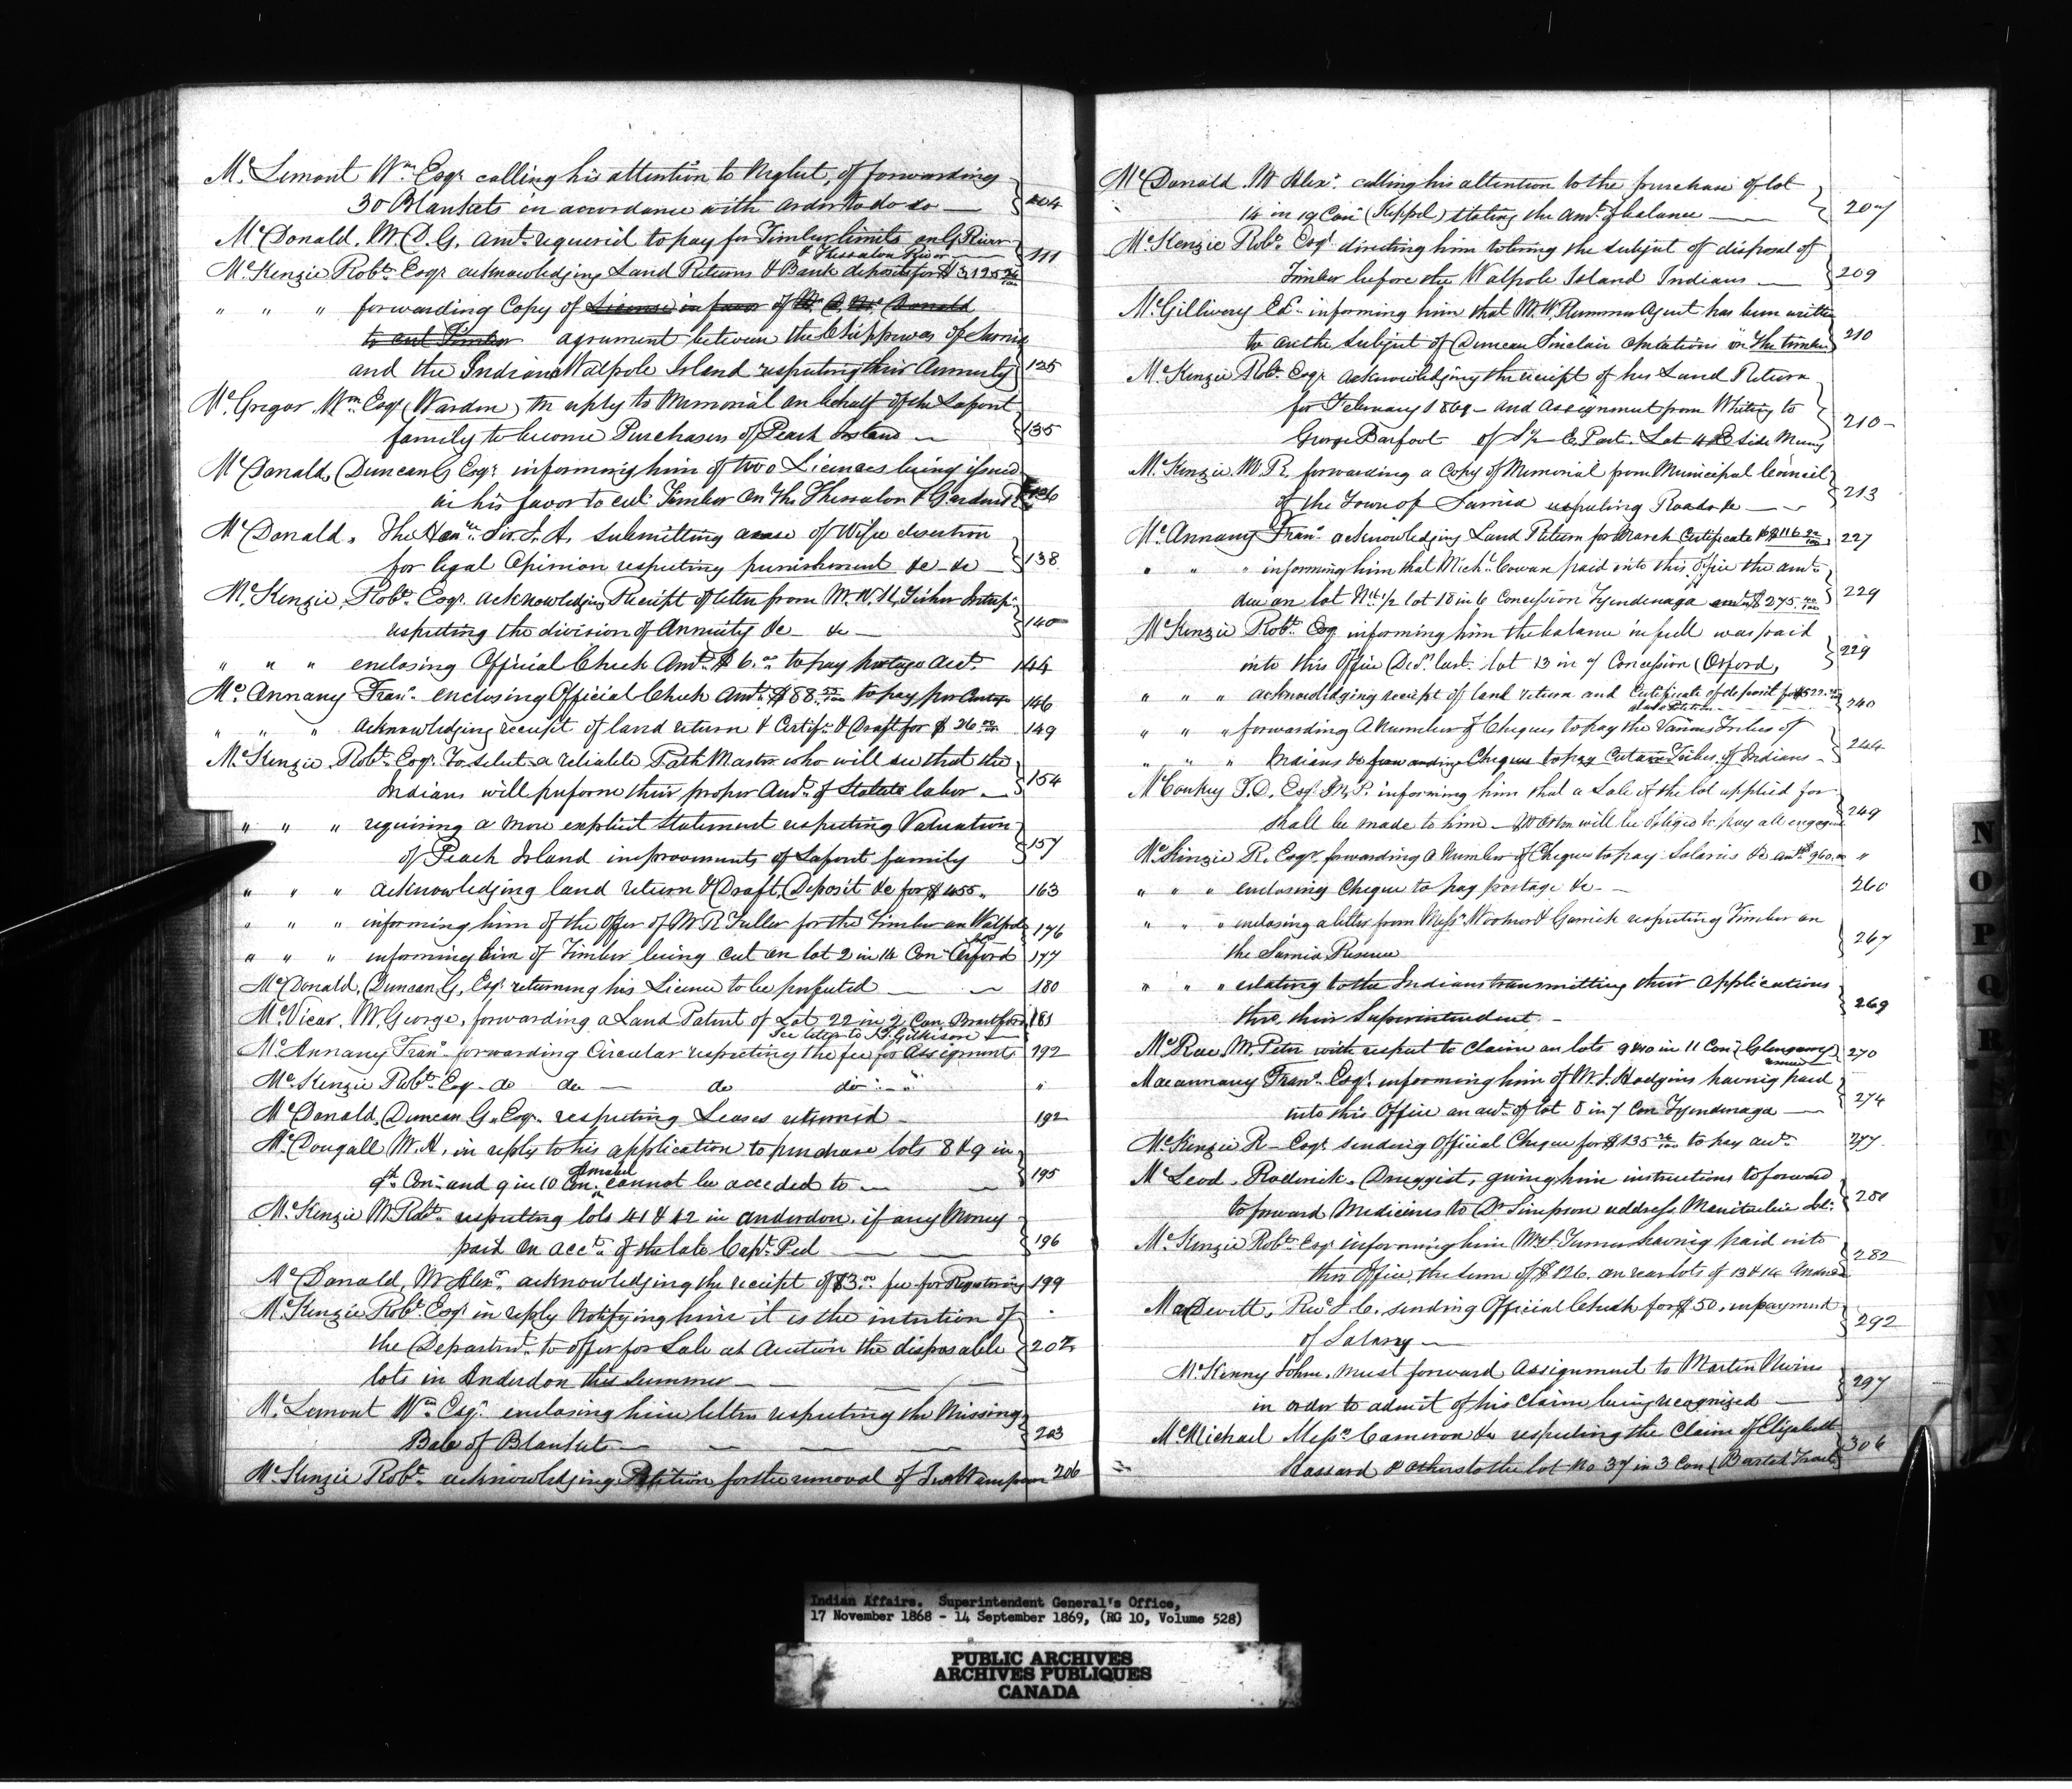 Mc Lemont Wm Esqr calling his attention to Neglect, of forwarding
30 Blankets in accordance with order to do so — 104
McDonald. Mr D. G. Amt requer'd to pay for Timber limits on G River
& Thessalon River — 111
McKenzie Robt Esqr acknowledging Land Returns & Bank deposits for $3,125
" " " forwarding Copy of License in favor of Mr D. Mc Donald
to cut Timber agrument between the Chippewas of Sarnia
and the Indians Walpole Island respecting their Annuity 125
McGregor Wm Esqr (Warden) in reply to Memorial on behalf of the Laforet
family to become Purchasers of Peach Island — 135
McDonald, Duncan G Esqr informing him of two Licences being issued
in his favor to cut Timber on the Thessalon & Garden R 136
McDonald, The Honble Sir J. A. submitting a case of Wife desertion
for legal Opinion respecting punishment &c - &c — 138
McKenzie, Robt Esqr. Acknowledging Receipt of letter from Mr. W. H. Fisher
respecting the division of Annuity &c — &c — 140
" " " enclosing Official Check Amt $6.00 to pay postage Acct. 144
McAnnany Frans. enclosing Official Check Amt $88. to pay 146
" " " acknowledging receipt of land return & Certife & Draft for $26 149
McKenzie Robt Esqr. To select a reliable Path Master who will see that the
Indians will preform their proper Amt of Statute labor — 154
" " " requiring a more explicit Statement respecting Valuation
of Peach Island improvements of Laforet family 157
" " " acknowledging land return & Draft, Deposit &c for $455 „ 163
" " " informing him of the offer of Mr R Fuller for the Timber on Walpole
Isld 176
" " " informing him of Timber being cut on lot 2 in 14 Con Orford 177
McDonald, Duncan G, Esqr returning his Licence to be perfected — — 180
McVicar, Mr George, forwarding a Land Patent of Lot 22 in 2 Con. Brantford 181
See letter to J. T. Gilkison
McAnnany Frans forwarding Circular respecting the fee for Assignments 192
McKenzie Robt Esq - do do — do do "
McDonald, Duncan G. Esqr. respecting Leases returned — 192
McDougall Mr A, in reply to his application to purchase lots 8 & 9 in
9th Con - and 9 in 10 Con. cannot be acceded to — — 195
McKenzie Mr Robt respecting lots 41 & 42 in Anderdon. if any Money
paid on acct of the late Capt. Peel — — 196
McDonald, Mr Alexr acknowledging the receipt of $3.00 fee for Registering 199
McKenzie Robt Esqr in reply Notifying him it is the intention of
the Departmt. to offer for Sale at Auction the disposable 202
lots in Anderdon this Summer —
McLemont Wm Esqr. enclosing him letter respecting the Missing
Bale of Blankets — — — — 203
McKenzie Robt acknowledging Petition for the removal of 206
McDonald Mr Alexr. calling his attention to the purchase of lot
14 in 19 Con (Keppel) stating the Amt of balance — 207
McKenzie Robt Esqr directing him to bring the subject of disposal of
Timber before the Walpole Island Indians — 209
McGillivery Ed. informing him that Mr W. Plummer Agent has been written
to on the subject of Duncan Sinclair opirations on the timber 210
McKenzie Robt Esqr acknowledging the reciept of his Land Return
for February 1869 - and Assignment from Whiting to
George Barfoot of S½ E. Part. Lot 4 E Side 210
McKenzie Mr R. forwarding a Copy of Memorial from Municipal Council
of the Town of Sarnia respecting Roads &c — 213
McAnnany Frans acknowledging Land Return for March Certificate $116 227
" " " informing him that Michl. Cowan paid into this Office the amt
due on lot Nth ½ lot 18 in 6 Concession Tyendenaga $275 229
McKenzie Robt Esq informing him the balance in full was paid
into this Office Decr. last lot 13 in 7 Concession (Orford, 229
" " " acknowledging receipt of land return and Certificate of deposit for $522
240
" " " forwarding A Number of Cheques to pay the Various Tribes of
" " " Indians &c forwarding Cheques to pay Certain Tribes of Indians — 244
McConkey T. D. Esqr. M. P. informing him that a Sale of the lot applied for
shall be made to him — will be obliged to pay all 249
McKinzie R. Esqr. forwarding A Number of Cheques to pay Salaries &c amt $960.00 "
" " " enclosing Cheque to pay postage &c — 260
" " " enclosing a letter from Messrs. & Garrick respecting Timber on
the Sarnia Reserve 267
" " " relating to the Indians transmitting their Applications
thro, their Superintendent — 269
McRae, Mr. Peter with respect to Claim on lots 9 & 10 in 11 Con (Glengarry) 270
Macannany Frans. Esqr. informing him of Mr. J. Hodgins having paid
into this Office on act of lot 8 in 7 Con Tyendenaga — 274
McKenzie R - Esqr sending Official Cheque for $135 to pay acct. 277
McLeod, Roderick, Druggist, giving him instructions to forward
to forward Medicines to Dr Simpson address Manitoulin Isl: 281
McKenzie Robt Esqr informing him Mr J. Turner having paid into
this Office, the sum of $126. on rear lots of 13 & 14 282
MacDevitt, Revd J. C. sending Official Check for $50, in payment
of Salary — 292
McKenny John, must forward Assignment to Martin Nivins
in order to admit of his Claim being recognized — 297
McMichael Messrs Cameron &c respecting the Claim of Elizabeth
Hassard & others to the lot No 37 in 3 Con (Bartch Tract) 306
N
O
P
Q
R
Indian Affairs. Superintendent General's Office,
17 November 1868 - 14 September 1869, (RG 10, Volume 528)
PUBLIC ARCHIVES
ARCHIVES PUBLIQUES
CANADA